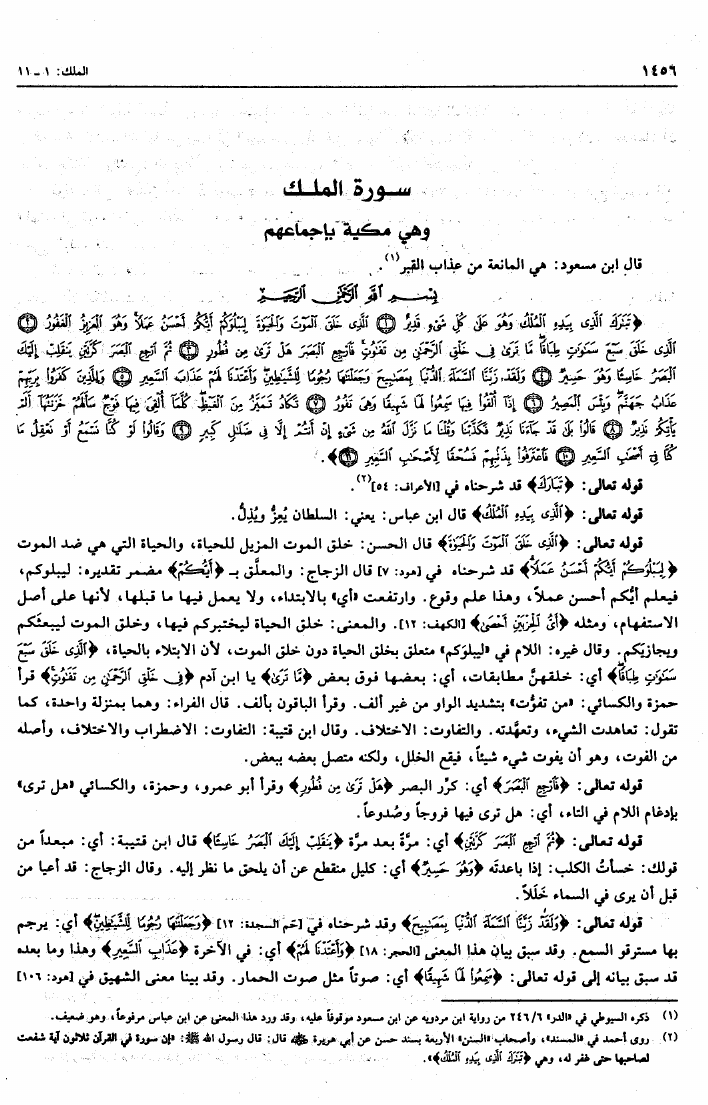 ١٤٥٦
الملك: ١ - ١١
سورة الملك
وهي مكية بإجماعهم
قال ابن مسعود: هي المانعة من عذاب القبر(١).
بِسْمِ اللَّهِ الرَّحْمَٰنِ الرَّحِيمِ
﴿تَبَٰرَكَ الَّذِى بِيَدِهِ الْمُلْكُ وَهُوَ عَلَىٰ كُلِّ شَىْءٍ قَدِيرٌ ١ الَّذِى خَلَقَ الْمَوْتَ وَالْحَيَوٰةَ لِيَبْلُوَكُمْ أَيُّكُمْ أَحْسَنُ عَمَلًا وَهُوَ الْعَزِيزُ الْغَفُورُ ٢
الَّذِى خَلَقَ سَبْعَ سَمَٰوَٰتٍ طِبَاقًا مَّا تَرَىٰ فِى خَلْقِ الرَّحْمَٰنِ مِن تَفَٰوُتٍ فَارْجِعِ الْبَصَرَ هَلْ تَرَىٰ مِن فُطُورٍ ٣ ثُمَّ ارْجِعِ الْبَصَرَ كَرَّتَيْنِ يَنقَلِبْ إِلَيْكَ
الْبَصَرُ خَاسِئًا وَهُوَ حَسِيرٌ ٤ وَلَقَدْ زَيَّنَّا السَّمَآءَ الدُّنْيَا بِمَصَٰبِيحَ وَجَعَلْنَٰهَا رُجُومًا لِّلشَّيَٰطِينِ وَأَعْتَدْنَا لَهُمْ عَذَابَ السَّعِيرِ ٥ وَلِلَّذِينَ كَفَرُوا بِرَبِّهِمْ
عَذَابُ جَهَنَّمَ وَبِئْسَ الْمَصِيرُ ٦ إِذَآ أُلْقُوا فِيهَا سَمِعُوا لَهَا شَهِيقًا وَهِىَ تَفُورُ ٧ تَكَادُ تَمَيَّزُ مِنَ الْغَيْظِ كُلَّمَآ أُلْقِىَ فِيهَا فَوْجٌ سَأَلَهُمْ خَزَنَتُهَآ أَلَمْ
يَأْتِكُمْ نَذِيرٌ ٨ قَالُوا بَلَىٰ قَدْ جَآءَنَا نَذِيرٌ فَكَذَّبْنَا وَقُلْنَا مَا نَزَّلَ اللَّهُ مِن شَىْءٍ إِنْ أَنتُمْ إِلَّا فِى ضَلَٰلٍ كَبِيرٍ ٩ وَقَالُوا لَوْ كُنَّا نَسْمَعُ أَوْ نَعْقِلُ مَا
كُنَّا فِىٓ أَصْحَٰبِ السَّعِيرِ ١٠ فَاعْتَرَفُوا بِذَنۢبِهِمْ فَسُحْقًا لِّأَصْحَٰبِ السَّعِيرِ ١١﴾.
قوله تعالى: ﴿تَبَارَكَ﴾ قد شرحناه في [الأعراف: ٥٤](٢).
قوله تعالى: ﴿الَّذِى بِيَدِهِ الْمُلْكُ﴾ قال ابن عباس: يعني: السلطان يُعِزُّ ويُذِلُّ.
قوله تعالى: ﴿الَّذِى خَلَقَ الْمَوْتَ وَالْحَيَوٰةَ﴾ قال الحسن: خلق الموت المزيل للحياة، والحياة التي هي ضد الموت
﴿لِيَبْلُوَكُمْ أَيُّكُمْ أَحْسَنُ عَمَلًا﴾ قد شرحناه في [هود: ٧] قال الزجاج: والمعلَّق بـ ﴿أَيُّكُمْ﴾ مضمر تقديره: ليبلوكم،
فيعلم أيُّكم أحسن عملاً، وهذا علم وقوع. وارتفعت «أي» بالابتداء، ولا يعمل فيها ما قبلها، لأنها على أصل
الاستفهام، ومثله ﴿أَىُّ الْحِزْبَيْنِ أَحْصَىٰ﴾ [الكهف: ١٢]. والمعنى: خلق الحياة ليختبركم فيها، وخلق الموت ليبعثكم
ويجازيكم. وقال غيره: اللام في «ليبلوَكم» متعلق بخلق الحياة دون خلق الموت، لأن الابتلاء بالحياة، ﴿الَّذِى خَلَقَ سَبْعَ
سَمَٰوَٰتٍ طِبَاقًا﴾ أي: خلقهنَّ مطابقات، أي: بعضها فوق بعض ﴿مَّا تَرَىٰ﴾ يا ابن آدم ﴿فِى خَلْقِ الرَّحْمَٰنِ مِن تَفَٰوُتٍ﴾ قرأ
حمزة والكسائي: «من تفوُّت» بتشديد الواو من غير ألف. وقرأ الباقون بألف. قال الفراء: وهما بمنزلة واحدة، كما
تقول: تعاهدت الشيء، وتعهَّدته. والتفاوت: الاختلاف. وقال ابن قتيبة: التفاوت: الاضطراب والاختلاف، وأصله
من الفوت، وهو أن يفوت شيء شيئاً، فيقع الخلل، ولكنه متصل بعضه ببعض.
قوله تعالى: ﴿فَارْجِعِ الْبَصَرَ﴾ أي: كرِّر البصر ﴿هَلْ تَرَىٰ مِن فُطُورٍ﴾ وقرأ أبو عمرو، وحمزة، والكسائي «هل ترى»
بإدغام اللام في التاء، أي: هل ترى فيها فروجاً وصُدوعاً.
قوله تعالى: ﴿ثُمَّ ارْجِعِ الْبَصَرَ كَرَّتَيْنِ﴾ أي: مرَّةً بعد مرَّة ﴿يَنقَلِبْ إِلَيْكَ الْبَصَرُ خَاسِئًا﴾ قال ابن قتيبة: أي: مبعداً من
قولك: خسأتُ الكلب: إذا باعدته ﴿وَهُوَ حَسِيرٌ﴾ أي: كليل منقطع عن أن يلحق ما نظر إليه. وقال الزجاج: قد أعيا من
قبل أن يرى في السماء خَلَلاً.
قوله تعالى: ﴿وَلَقَدْ زَيَّنَّا السَّمَآءَ الدُّنْيَا بِمَصَٰبِيحَ﴾ وقد شرحناه في [حم السجدة: ١٢] ﴿وَجَعَلْنَٰهَا رُجُومًا لِّلشَّيَٰطِينِ﴾ أي: يرجم
بها مسترقو السمع. وقد سبق بيان هذا المعنى [الحجر: ١٨] ﴿وَأَعْتَدْنَا لَهُمْ﴾ أي: في الآخرة ﴿عَذَابَ السَّعِيرِ﴾ وهذا وما بعده
قد سبق بيانه إلى قوله تعالى: ﴿سَمِعُوا لَهَا شَهِيقًا﴾ أي: صوتاً مثل صوت الحمار. وقد بينا معنى الشهيق في [هود: ١٠٦]
(١) ذكره السيوطي في «الدر» ٢٤٦/٦ من رواية ابن مردويه عن ابن مسعود موقوفاً عليه، وقد ورد هذا المعنى عن ابن عباس مرفوعاً، وهو ضعيف.
(٢) روى أحمد في «المسند»، وأصحاب «السنن» الأربعة بسند حسن عن أبي هريرة رضي الله عنه قال: قال رسول الله ﷺ: «إن سورة في القرآن ثلاثون آية شفعت
لصاحبها حتى غفر له، وهي ﴿تَبَٰرَكَ الَّذِى بِيَدِهِ الْمُلْكُ﴾».